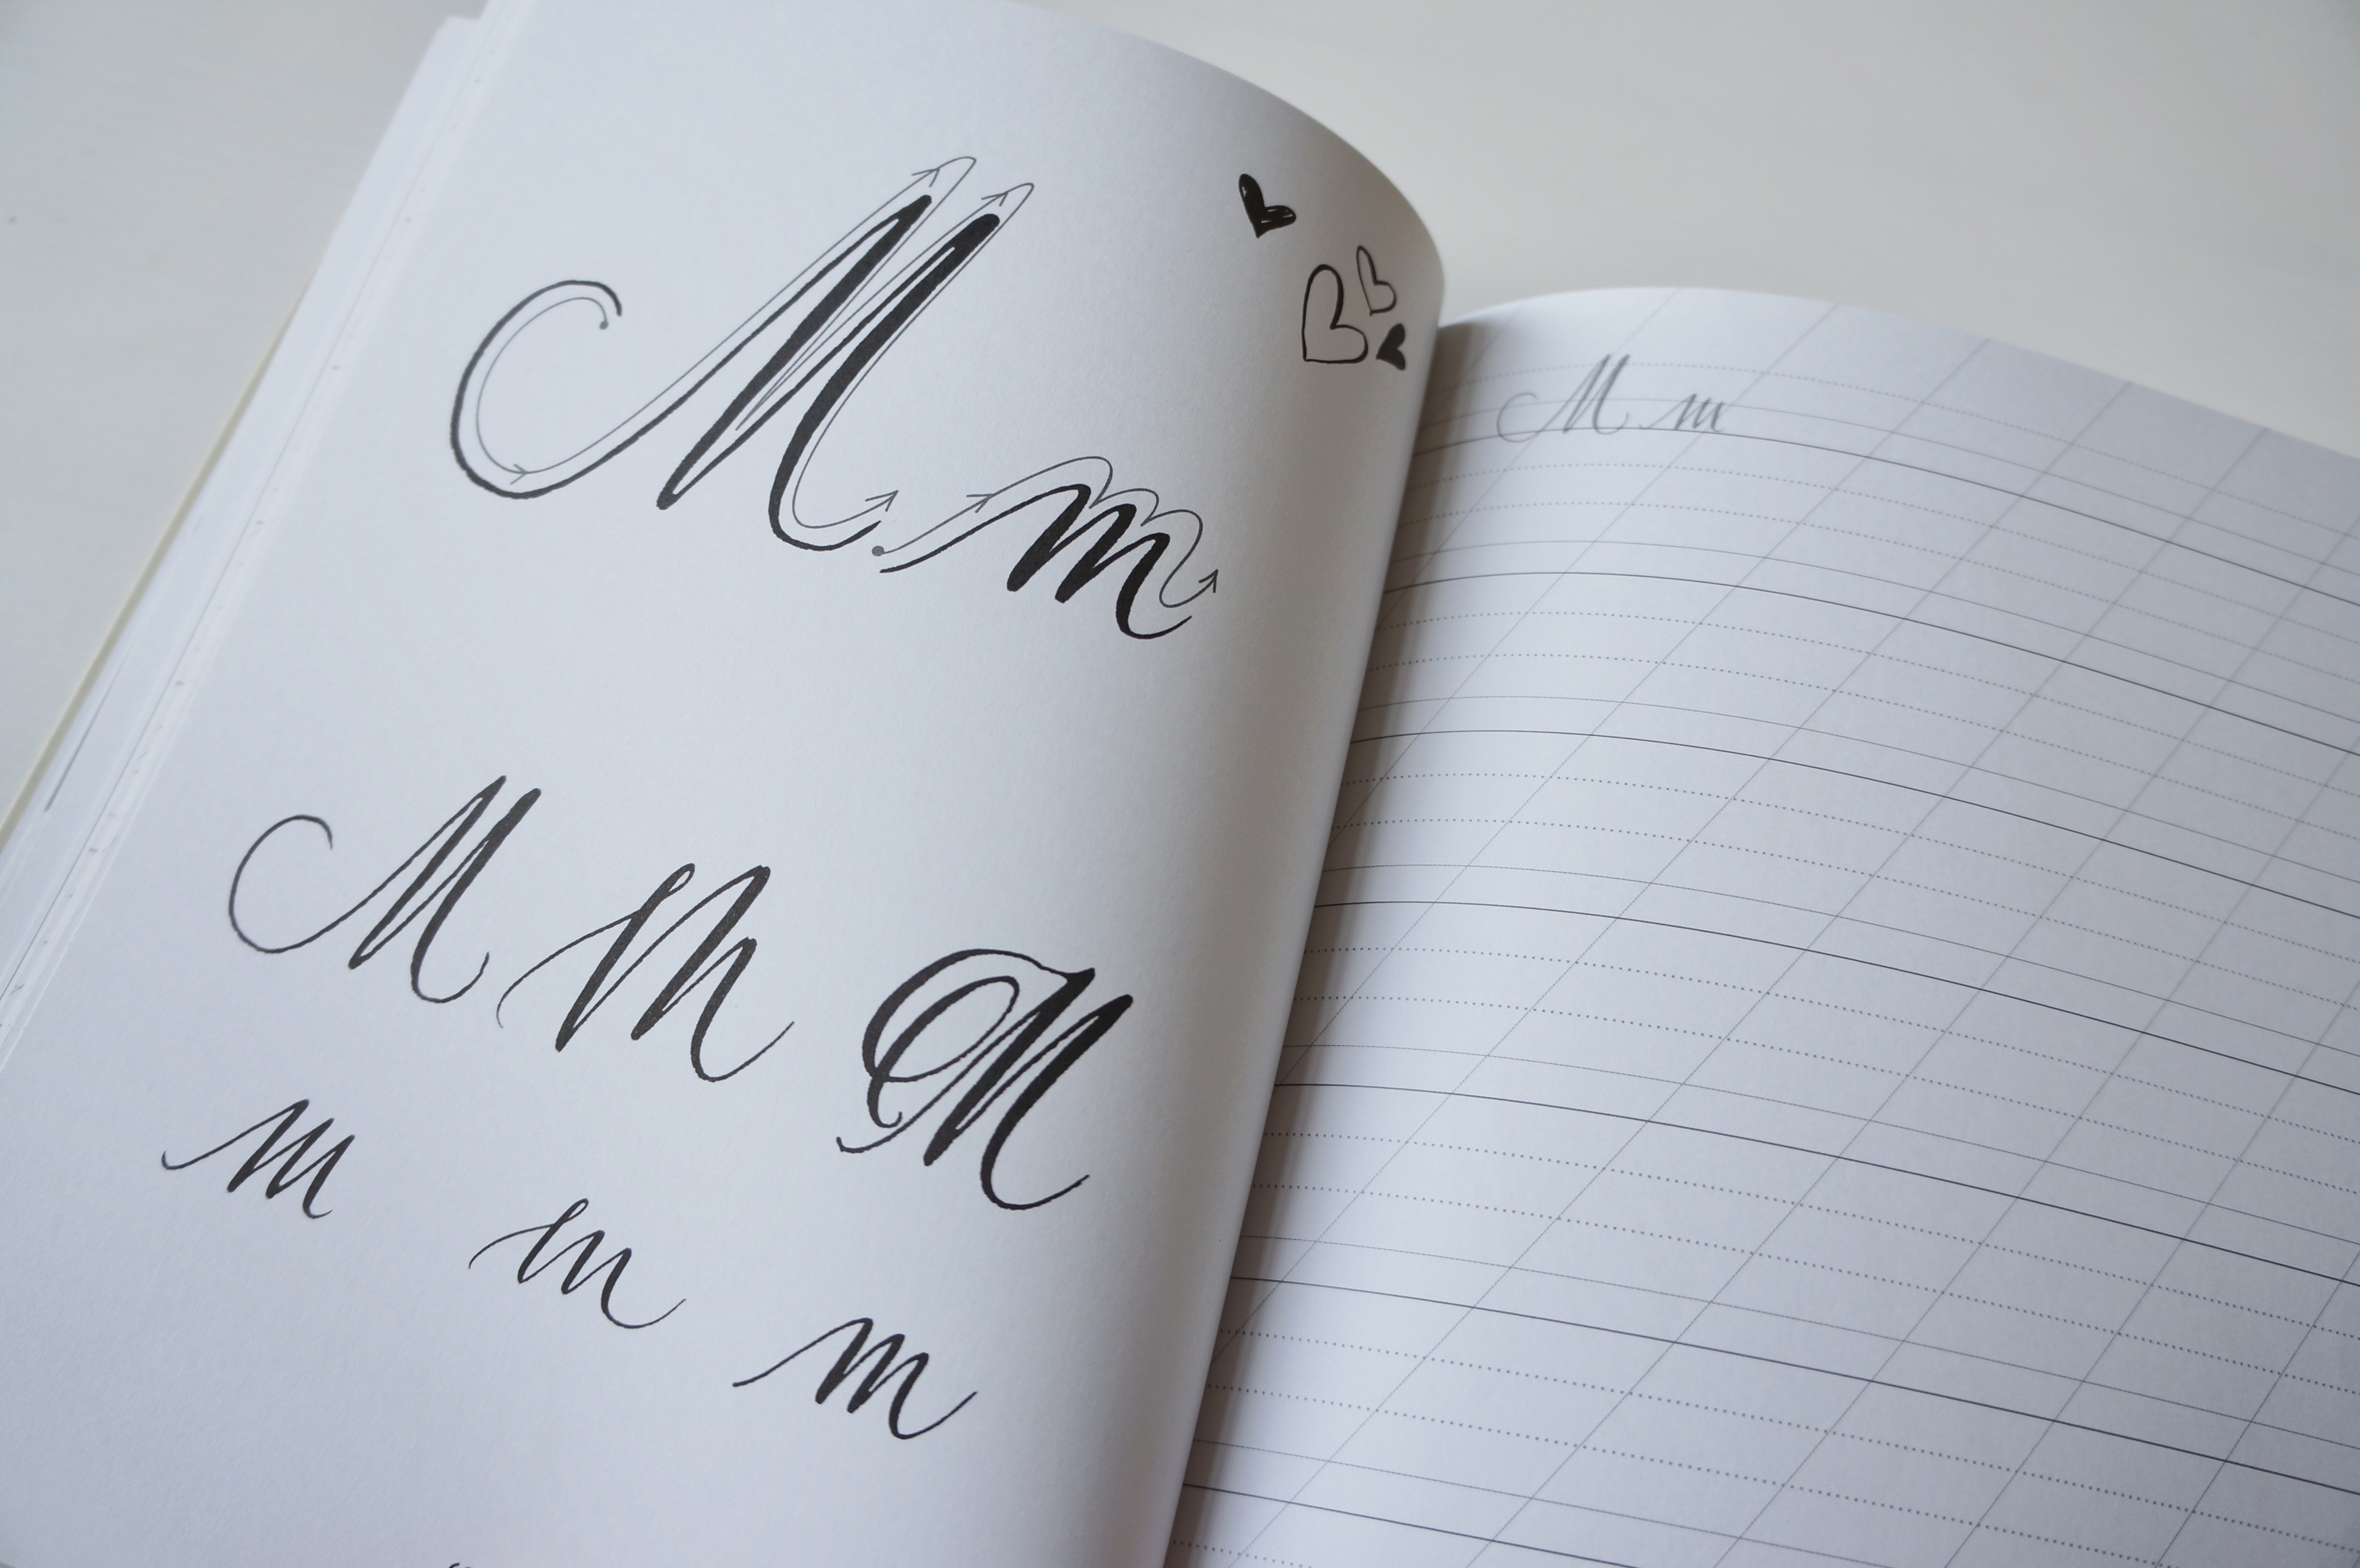 M m
M M M
m m m
M m